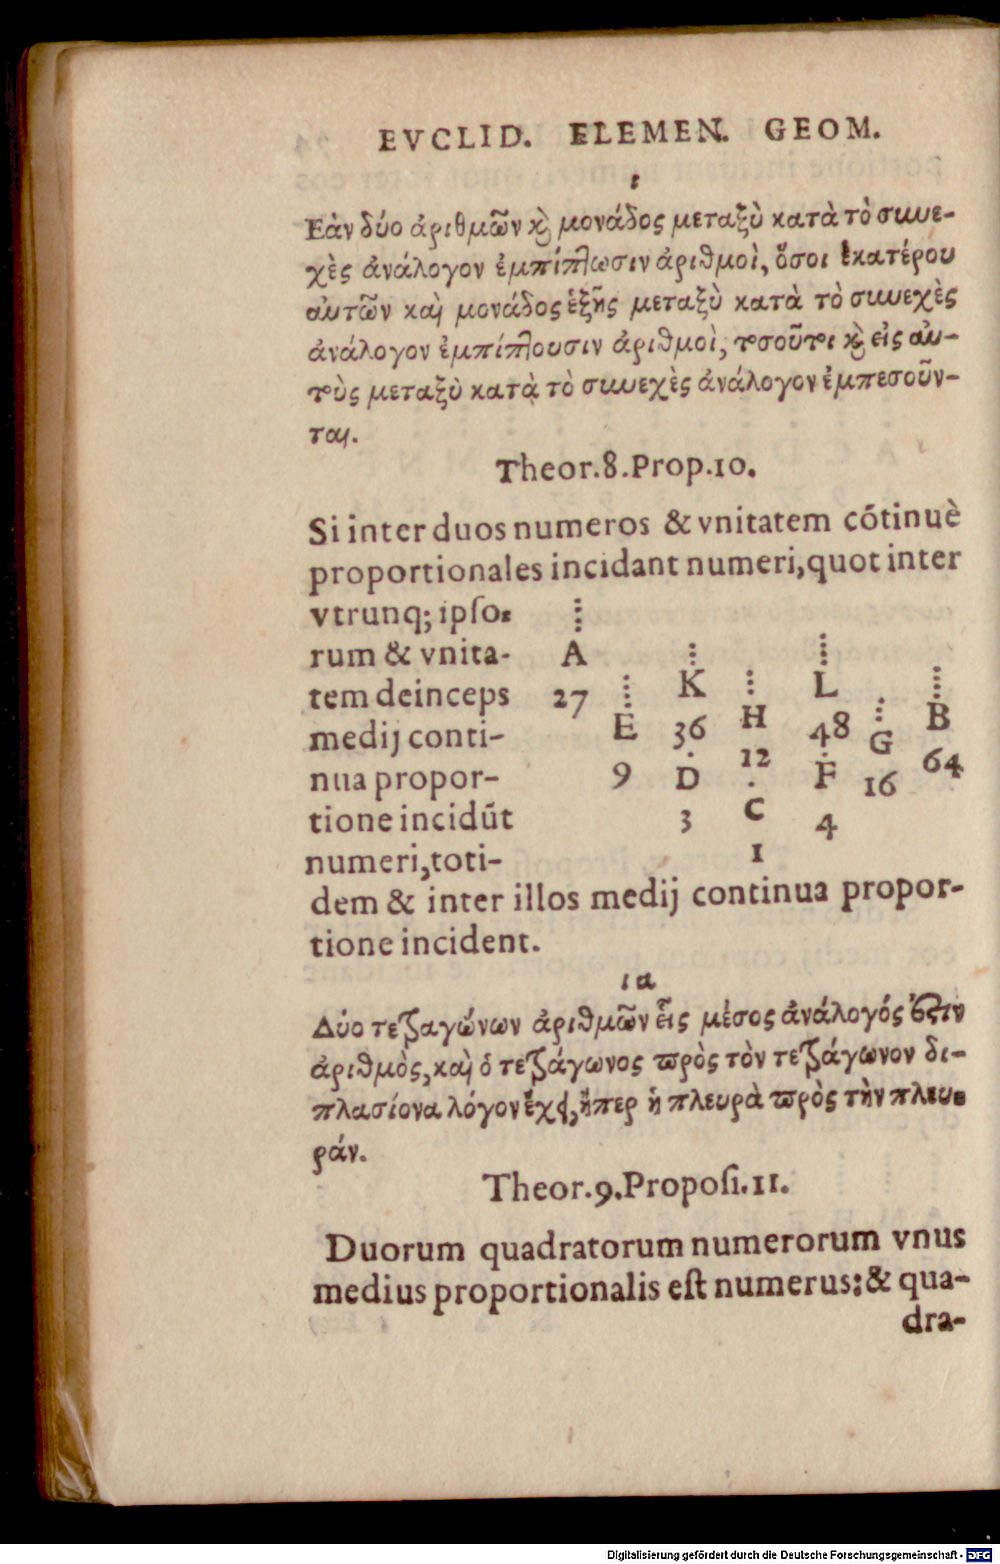 EVCLID. ELEMEN. GEOM.
ι
Εὰν δύο ἀριθμῶν κὶ μονάδος μεταξὺ κατὰ τὸ συνε-
χὲς ἀνάλογον ἐμπίπτωσιν ἀριθμοὶ, ὅσοι ἑκατέρου
αὐτῶν καὶ μονάδος ἑξῆς μεταξὺ κατὰ τὸ συνεχὲς
ἀνάλογον ἐμπίπτουσιν ἀριθμοὶ, τοσοῦτοι κὶ εἰς αὐ-
τοὺς μεταξὺ κατὰ τὸ συνεχὲς ἀνάλογον ἐμπεσοῦν-
ται.
Theor.8.Prop.10.
Si inter duos numeros & vnitatem cõtinuè
proportionales incidant numeri, quot inter
vtrunq; ipso-
rum & vnita-
tem deinceps
medij conti-
nua propor-
tione incidũt
numeri, toti-
A
K L
27
E H G B
36 48
9 D 12 F 16 64
3 C 4
1
dem & inter illos medij continua propor-
tione incident.
ια
Δύο τετραγώνων ἀριθμῶν εἷς μέσος ἀνάλογός ἐστιν
ἀριθμὸς, καὶ ὁ τετράγωνος πρὸς τὸν τετράγωνον δι-
πλασίονα λόγον ἔχει, ἤπερ ἡ πλευρὰ πρὸς τὴν πλευ-
ράν.
Theor.9.Proposi.11.
Duorum quadratorum numerorum vnus
medius proportionalis est numerus: & qua-
dra-
Digitalisierung gefördert durch die Deutsche Forschungsgemeinschaft - DFG